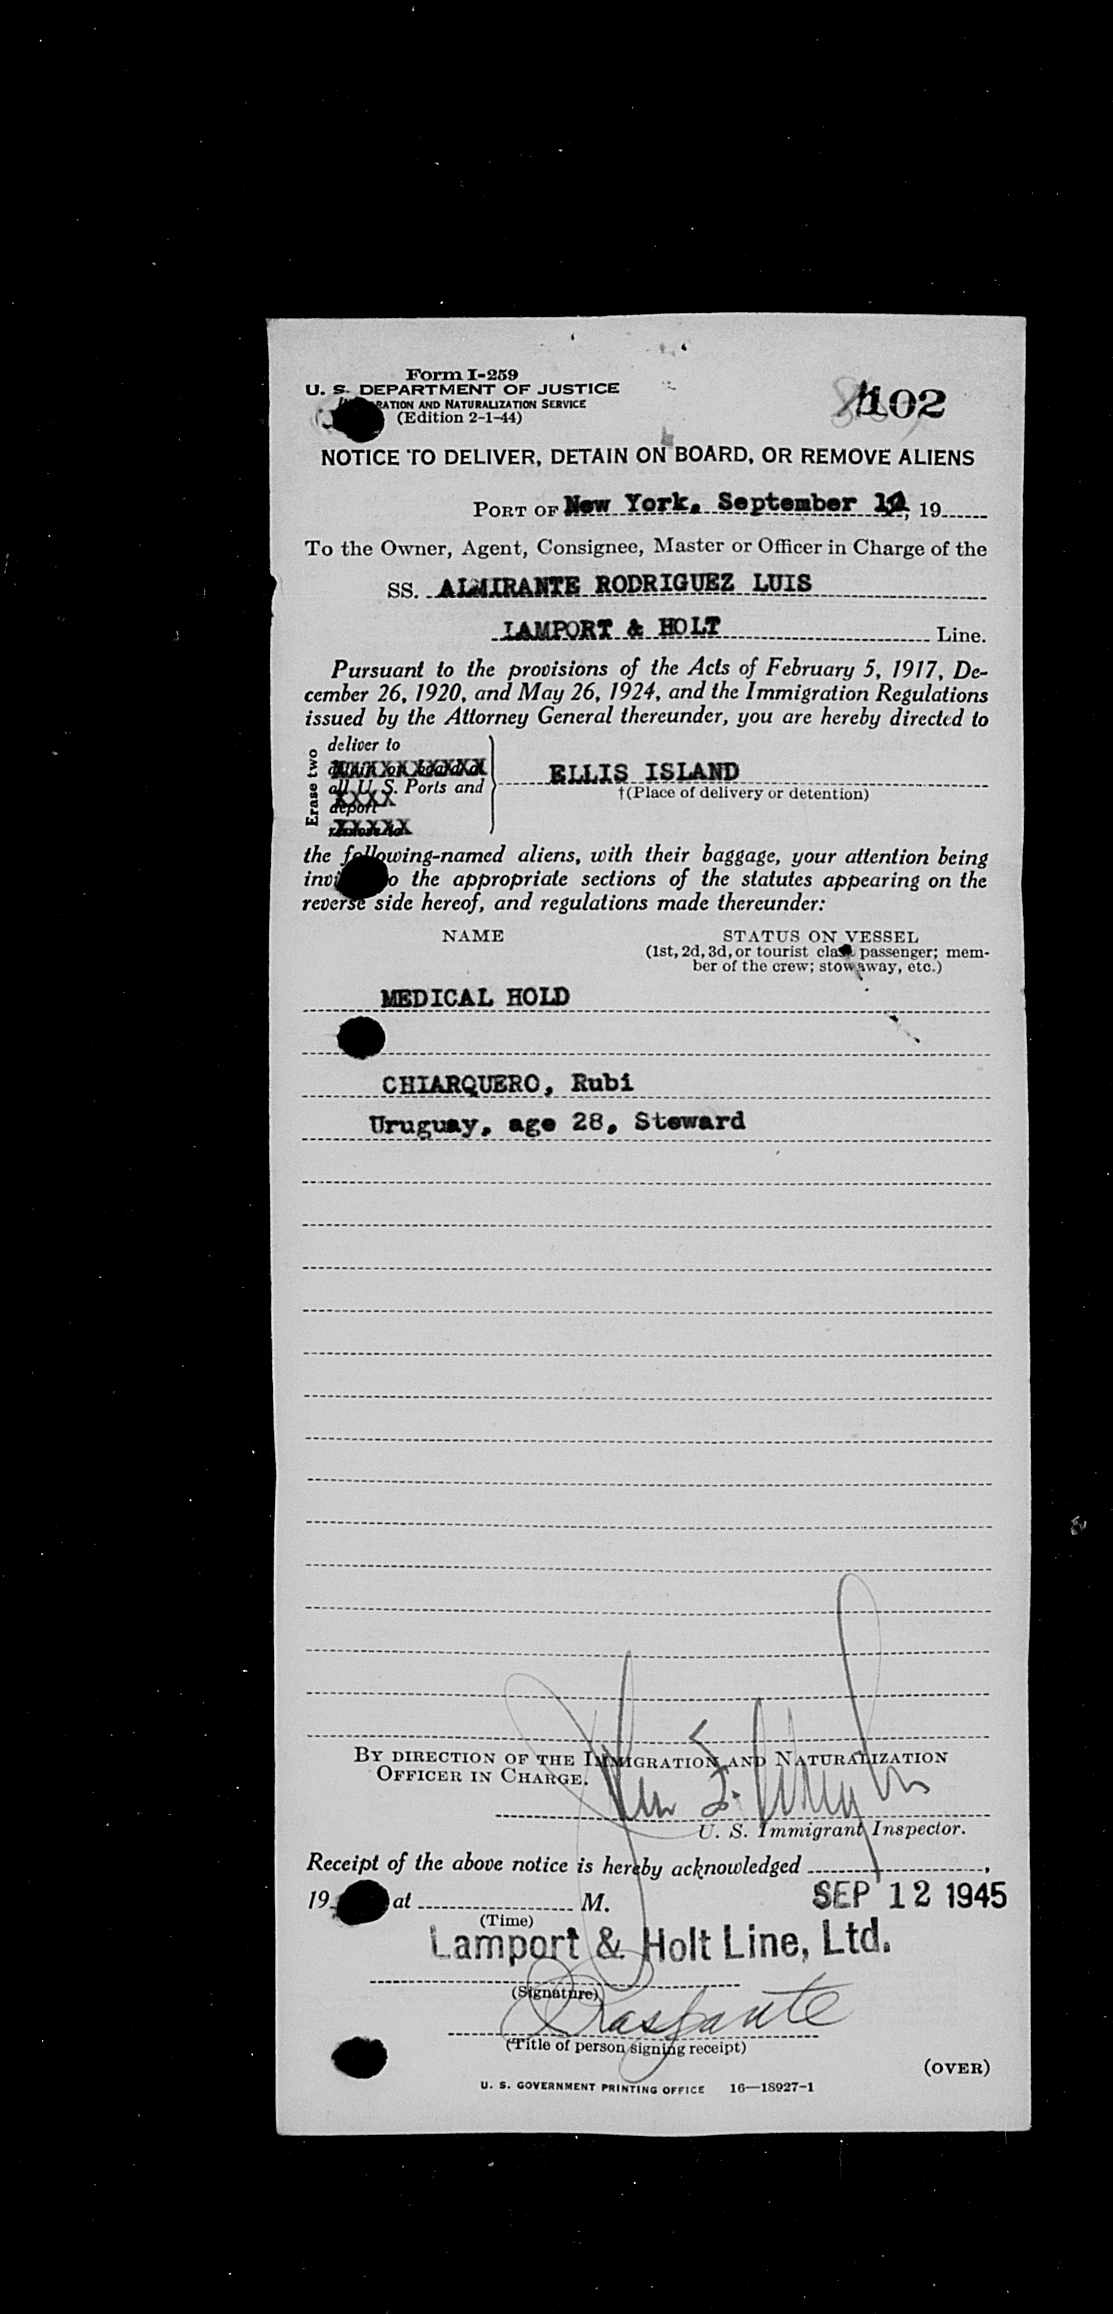 Form I-259
U. S. DEPARTMENT OF JUSTICE
AND NATURALIZATION SERVICE
(Edition 2-1-44)
102
NOTICE TO DELIVER, DETAIN ON BOARD, OR REMOVE ALIENS
PORT OF New York, September 12, 19
To the Owner, Agent, Consignee, Master or Officer in Charge of the
SS. ALMIRANTE RODRIGUEZ LUIS
LAMPORT & HOLT Line.
Pursuant to the provisions of the Acts of February 5, 1917, De-
cember 26, 1920, and May 26, 1924, and the Immigration Regulations
issued by the Attorney General thereunder, you are hereby directed to
Erase two
deliver to
all U. S. Ports and
deport
ELLIS ISLAND
†(Place of delivery or detention)
the following-named aliens, with their baggage, your attention being
the appropriate sections of the statutes appearing on the
reverse side hereof, and regulations made thereunder:
NAME STATUS ON VESSEL
(1st, 2d, 3d, or tourist class passenger; mem-
ber of the crew; stowaway, etc.)
MEDICAL HOLD
CHIARQUERO, Rubi
Uruguay, age 28, Steward
BY DIRECTION OF THE IMMIGRATION AND NATURALIZATION
OFFICER IN CHARGE.
U. S. Immigrant Inspector.
Receipt of the above notice is hereby acknowledged ,
19 at M. SEP 12 1945
(Time)
Lamport & Holt Line, Ltd.
(Signature)
(Title of person signing receipt)
(OVER)
U. S. GOVERNMENT PRINTING OFFICE 16—18927-1